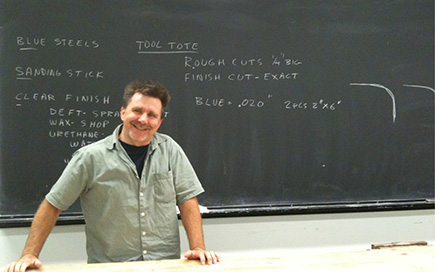 BLUE STEELS
SANDING STICK
CLEAR FINISH
DEFT - SPRA
WAX - SHOP
URETHANE:
WA
TOOL TOTE
ROUGH CUTS ¼" BIG
FINISH CUT - EXACT
BLUE = .020" 2 PCS 2" X 6"